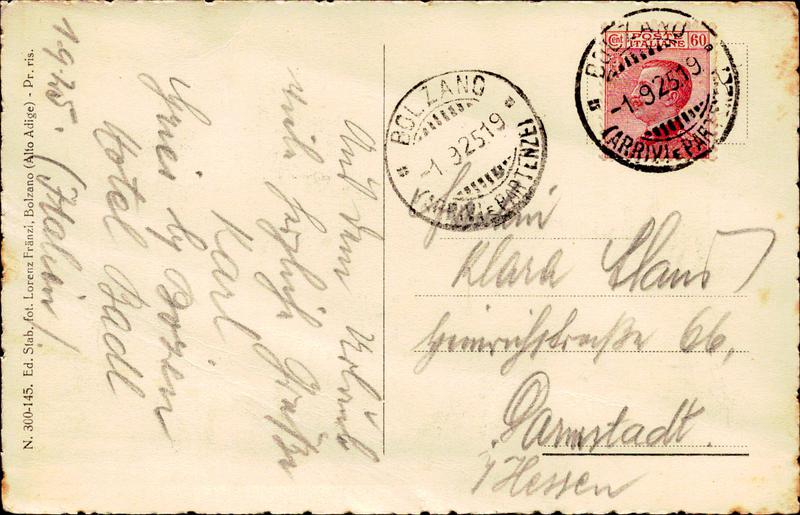 N. 300-145. Ed. Stab. fot. Lorenz Fränzi, Bolzano (Alto Adige) - Pr. ris.
1.9.25. (Italien)
Hotel Badl
Gries by Bozen
Aus dem Urlaub
viele herzliche Grüße
Karl
BOLZANO
-1.9.25 19
(ARRIVI E PARTENZE)
Cent POSTE 60
ITALIANE
BOLZANO
-1.9.25 19
(ARRIVI E PARTENZE)
Fräulein
Klara Claus
Heinrichstraße 66,
Darmstadt.
i/Hessen